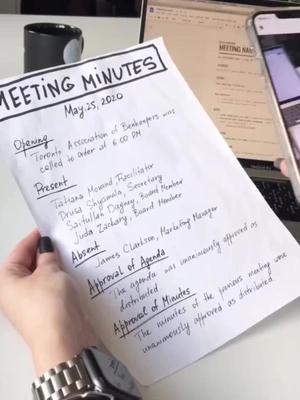 MEETING MINUTES
May, 25, 2020
Opening
Toronto Association of Beekeepers was
called to order at 6:00 PM
Present
Tatiana Mound, Facilitator
Drusa Shyamala, Secretary
Saifullah Dagney, Board Member
Juda Zachary, Board Member
Absent
James Clarkson, Marketing Manager
Approval of Agenda
The agenda was unanimously approved as
distributed.
Approval of Minutes
The minutes of the previous meeting were
unanimously approved as distributed.
MEETING NAM